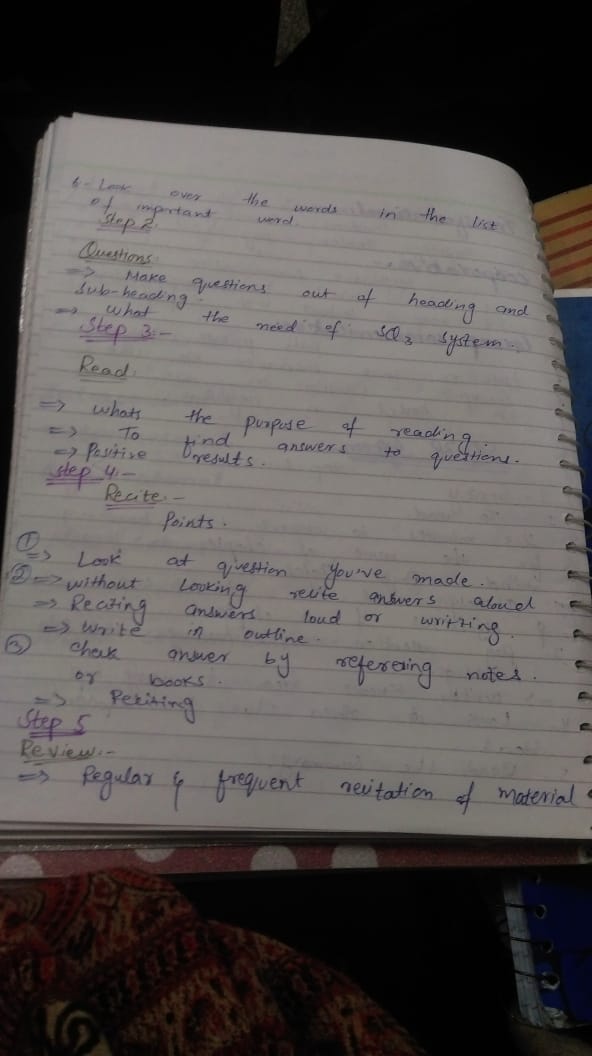 6- Look over the words in the list
of important word.
Step 2.
Questions:
=> Make questions out of heading and
sub-heading.
=> what the need of SQ3 system.
Step 3:-
Read:
=> whats the purpose of reading.
=> To find answers to questions.
=> Positive results.
Step 4:-
Recite:-
Points.
①
=> Look at question you've made.
② => without Looking recite answers aloud
=> Reciting answers loud or writting.
=> Write in outline.
③ chek answer by refereing notes.
or books.
=> Reciting
Step 5
Review:-
=> Regular & frequent recitation of material